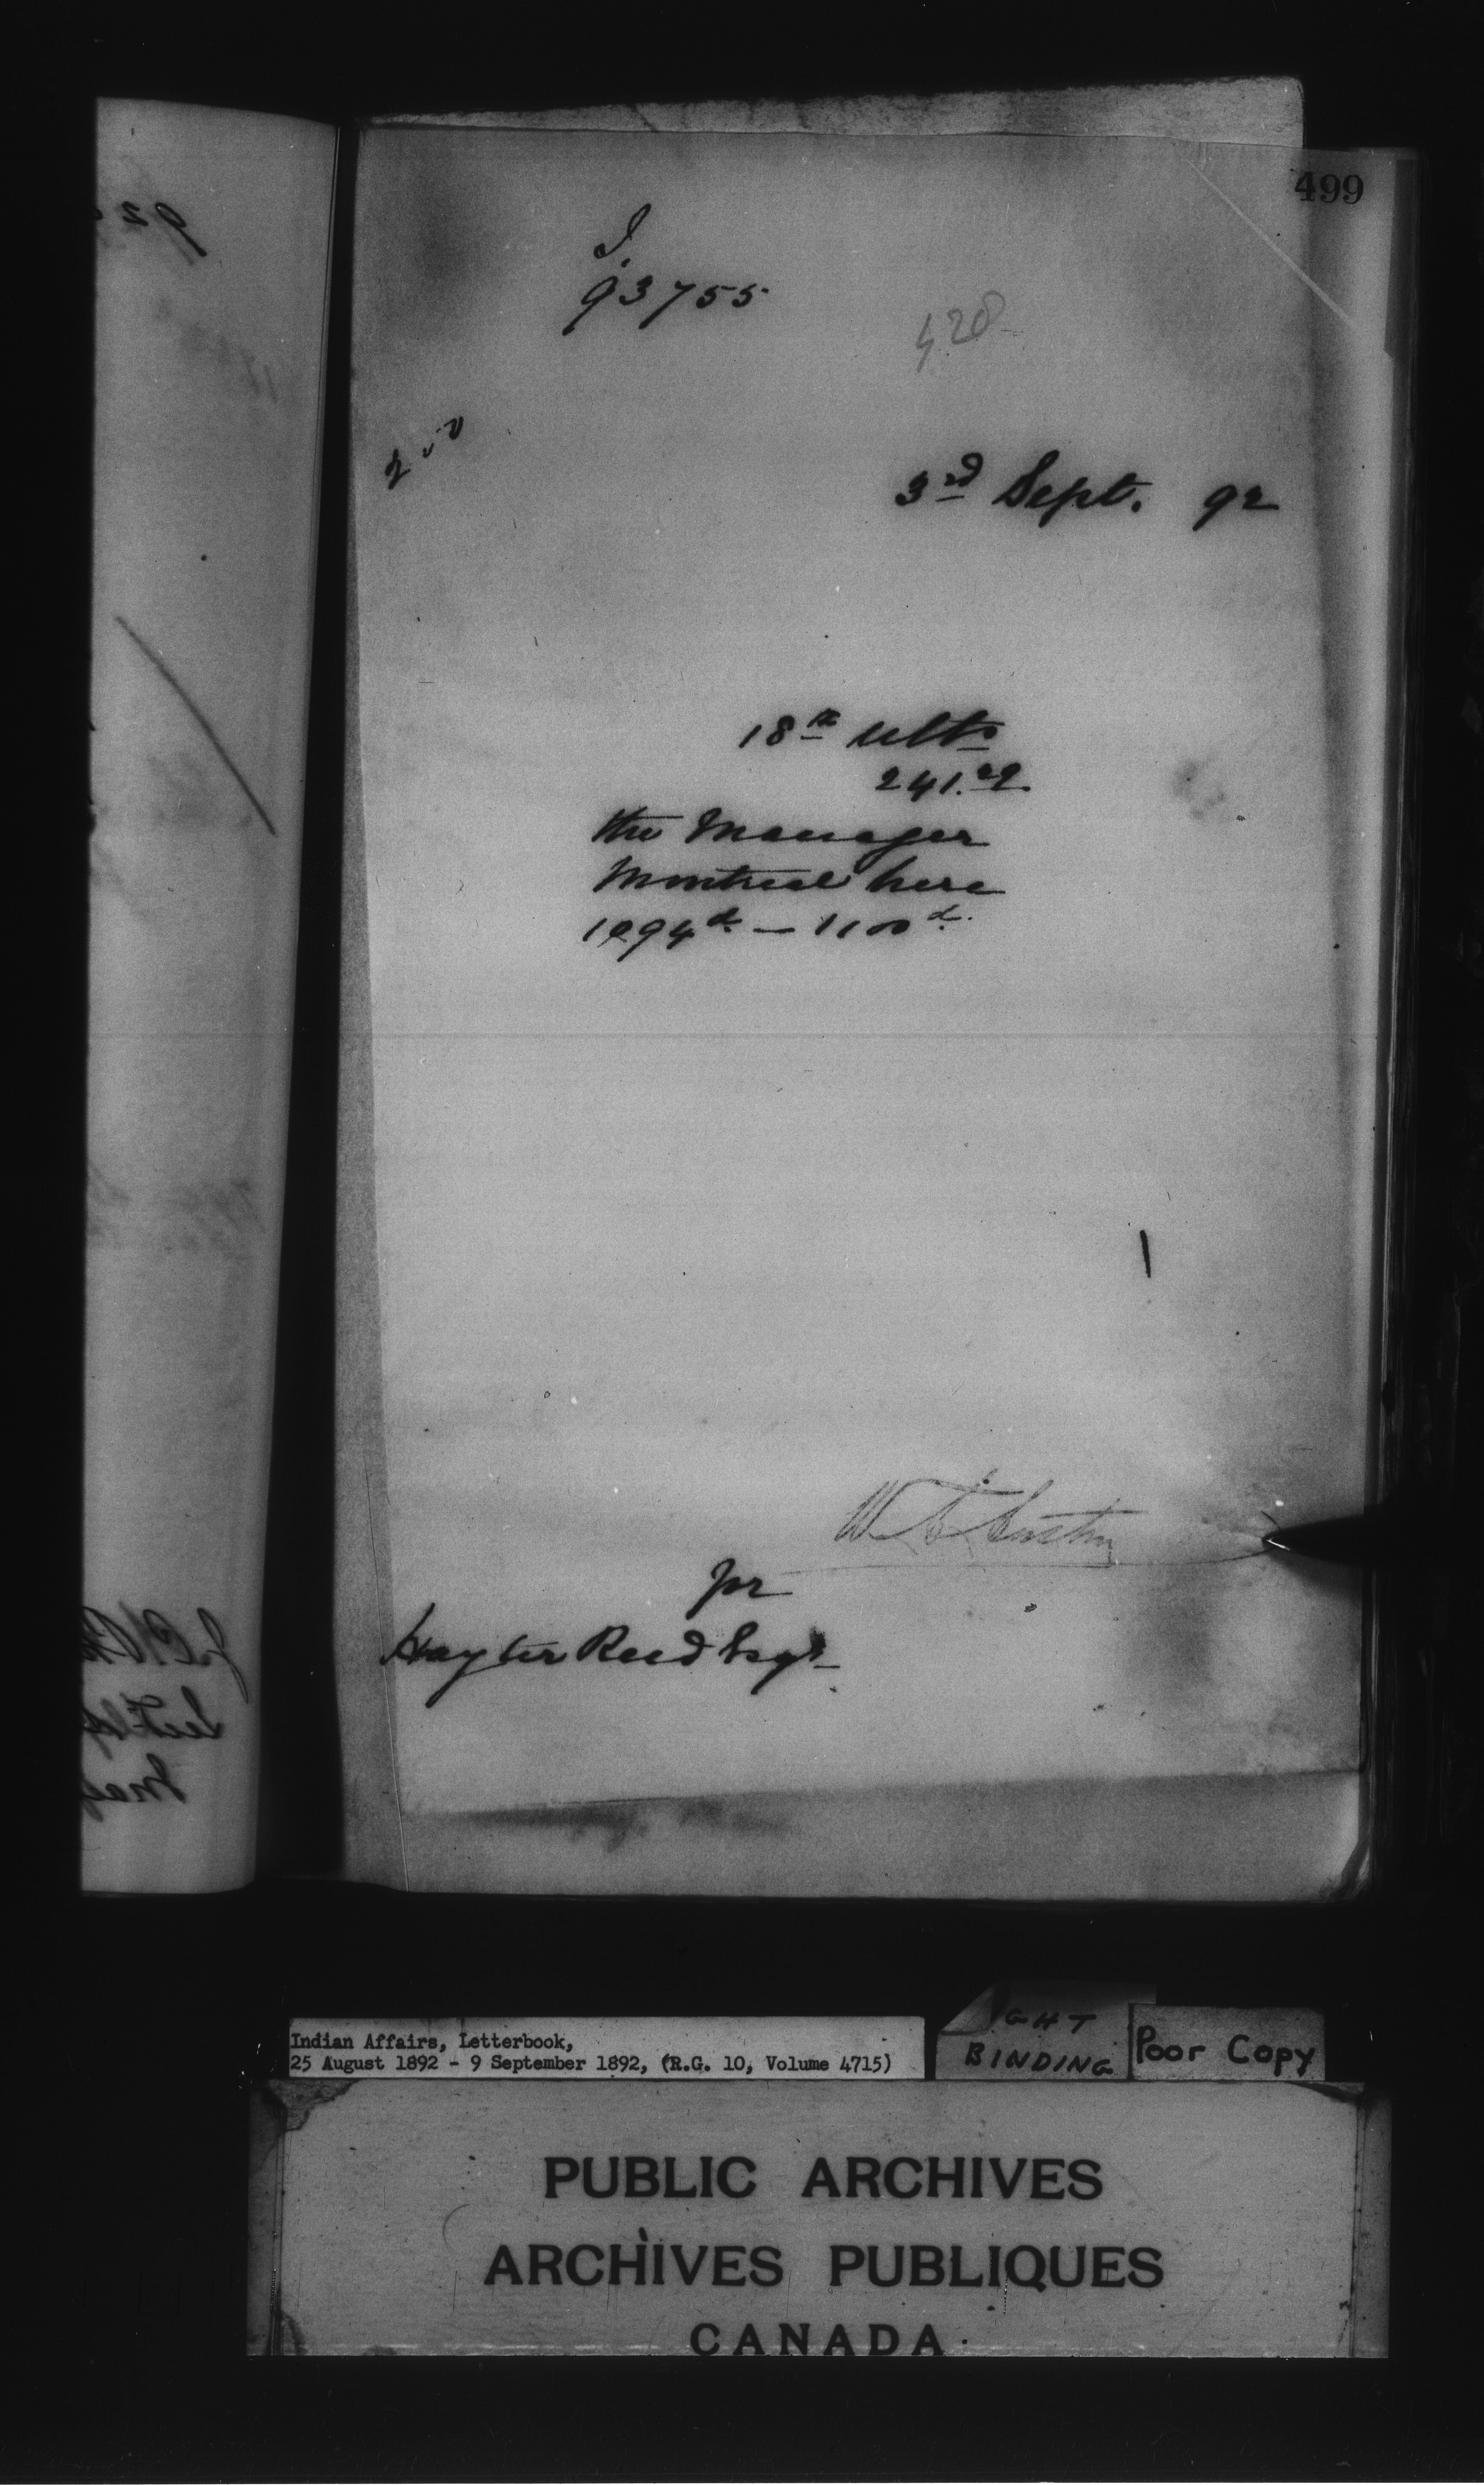 499
I.
93755
428
3rd Sept. 92
18th ulto
241.29
the Manager
Montreal here
1094d. — 1100d.
pr
Hayter Reed Esqr
Indian Affairs, Letterbook,
25 August 1892 - 9 September 1892, (R.G. 10, Volume 4715)
GHT
BINDING
Poor Copy
PUBLIC ARCHIVES
ARCHIVES PUBLIQUES
CANADA